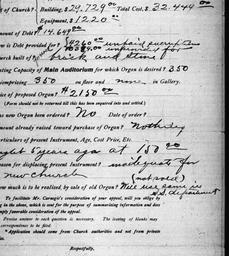 of Church? Building, $29.729.00 Total Cost, $32.444.00
Equipment, $1220.00
mount of Debt? $14.648.00
is Debt provided for?
urch built of? brick and stone
ating Capacity of Main Auditorium for which Organ is desired? 350
omprising 350 on floor and none in Gallery.
rice of proposed Organ? $2150.00
(Form should not be returned till this has been inquired into and settled.)
new Organ been ordered? No Date of order?
mount already raised toward purchase of Organ? Nothing
rticulars of present Instrument, Age, Cost Price, Etc.
ght 5 years ago at 150.00
eason for displacing present Instrument? inadequate for
new church (not sold)
ow much is to be realized, by sale of old Organ? Will use same in
S.S. department
To facilitate Mr. Carnegie's consideration of your appeal, will you oblige by
ing in the above, which is sent for the purpose of summarizing information and does
imply favorable consideration of the appeal.
Precise answer to each question is necessary. The leaving of blanks may
correspondence to be filed.
Application should come from Church authorities and not from private
Respectfully,